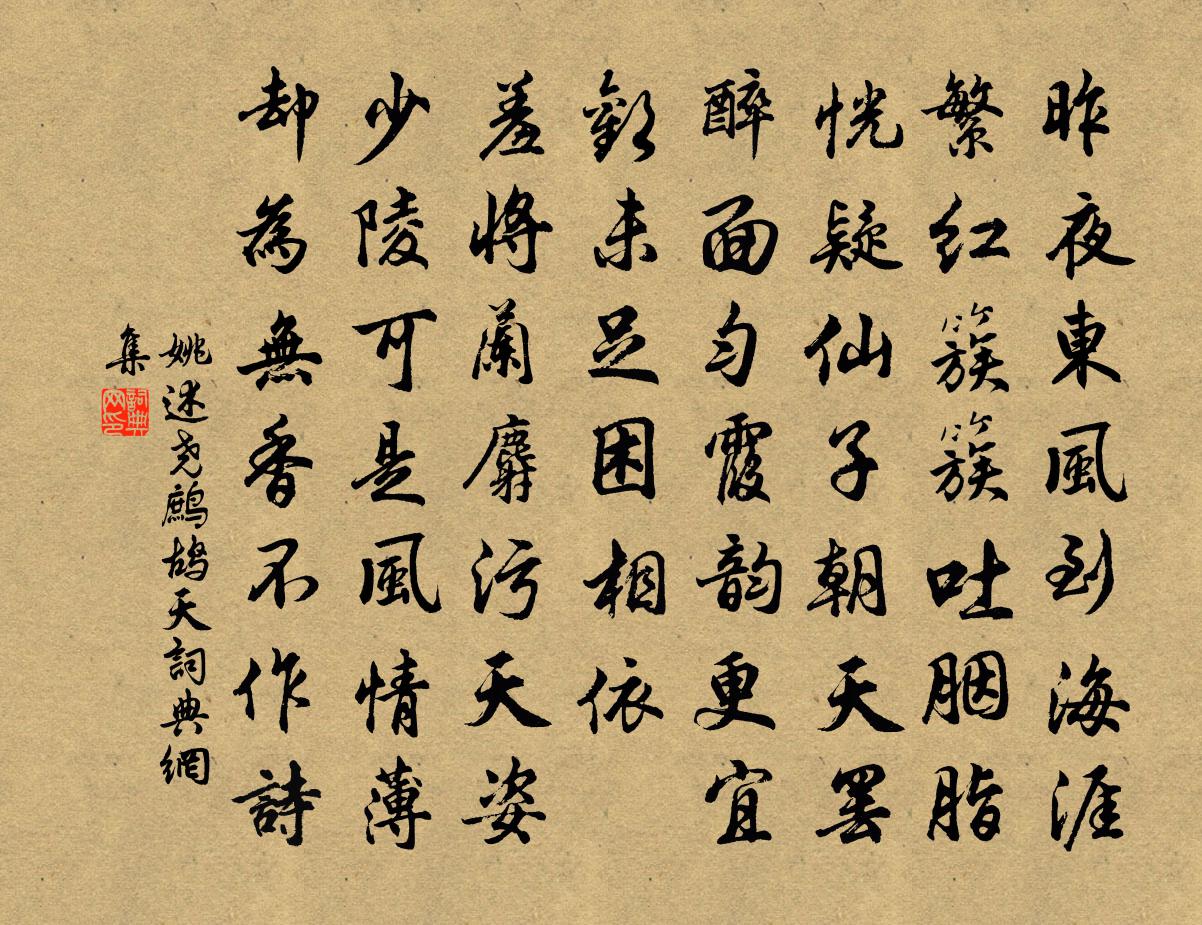 昨夜東風到海涯
繁紅簇簇吐胭脂
恍疑仙子朝天罢
醉面勻霞韵更宜
歡未足困相依
羞將蘭麝污天姿
少陵可是風情薄
却為無香不作詩
姚述尧鷓鴣天詞典網
集
詞典網印